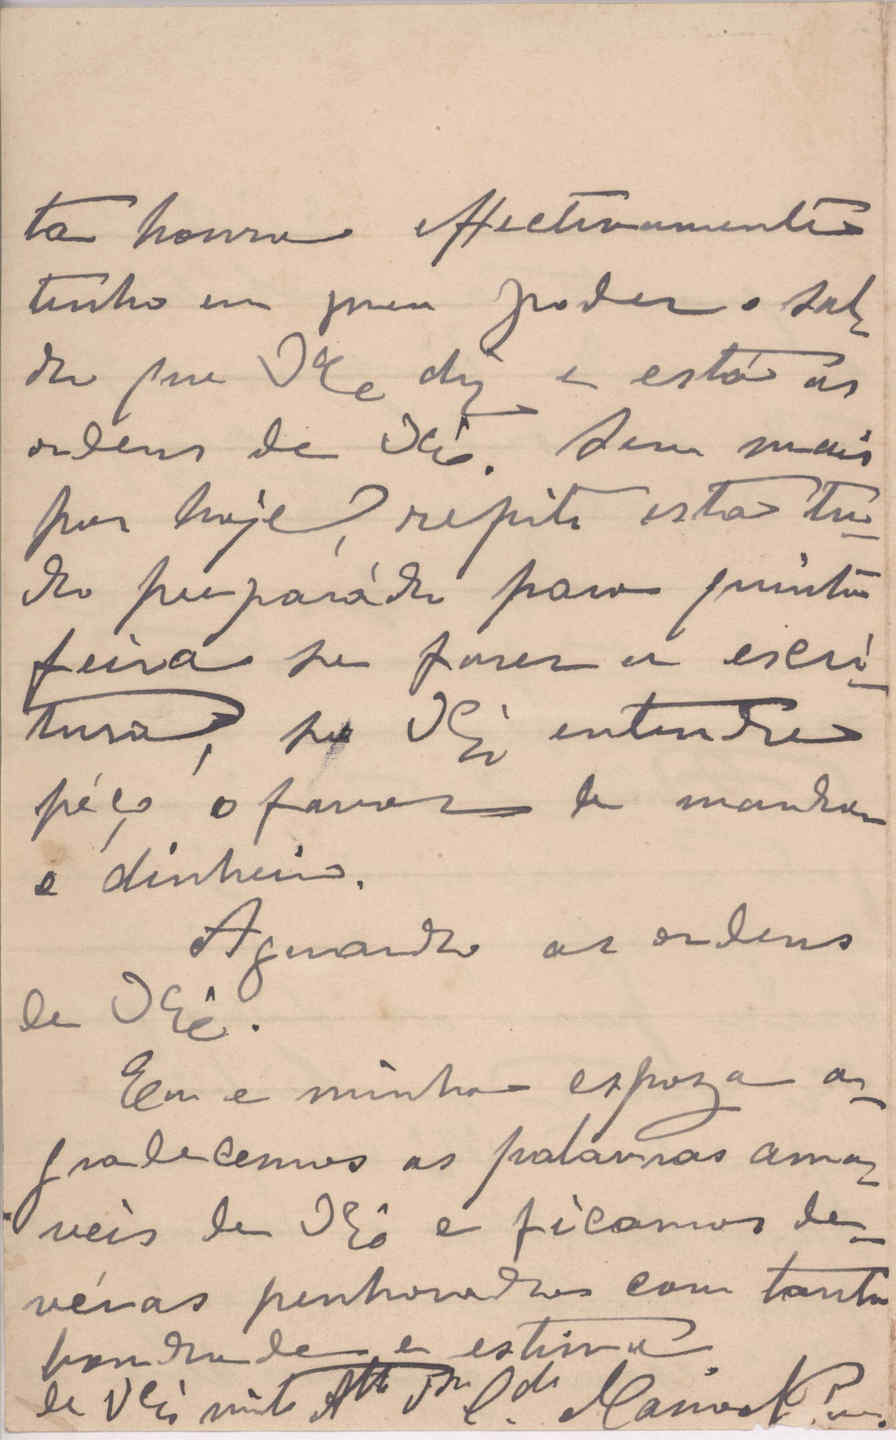 ta honra effectivamente
tinho em meu poder o sal-
do que VEx.ce diz e está ás
ordens de VEx.cia. Sem mais
por hoje, repito esta tu-
do preparádo para quinta
feira se fazer a escri-
tura, se VEx.cia entender
péço o favor de mandar
o dinheiro.
Aguardo as ordens
de VEx.cia.
Eu e minha espoza a-
gradecemos as palavras ama-
veis de VEx.cia e ficamos de-
véras penhorados com tanta
bondade e estima
de VEx.cia muito Att.o V.or C.do